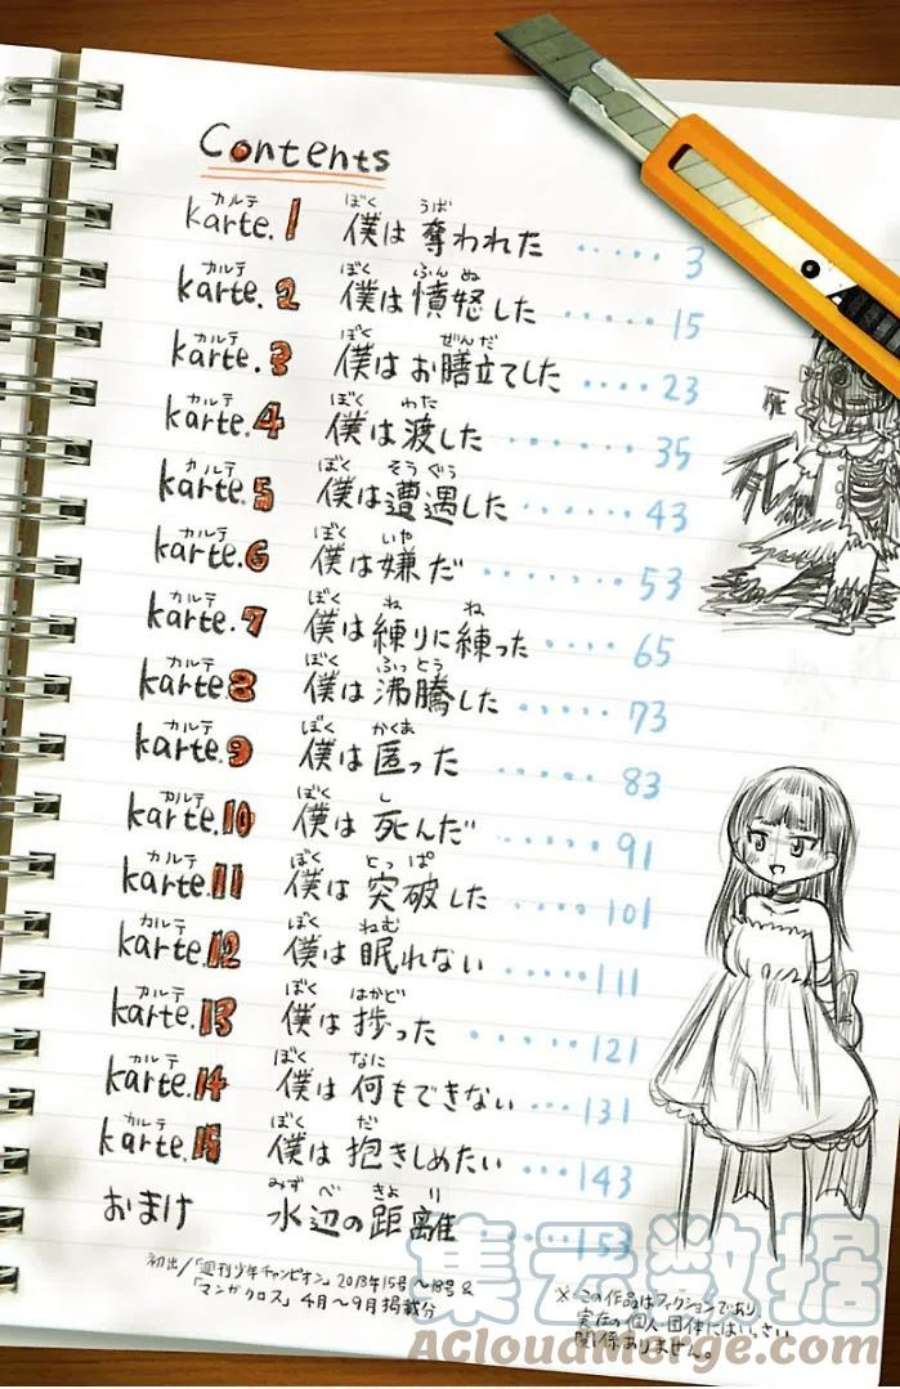 Contents
karte.1 僕は奪われた ‥‥‥ 3
karte.2 僕は憤怒した ‥‥‥ 15
karte.3 僕はお膳立てした ‥‥ 23
karte.4 僕は渡した ‥‥‥ 35
karte.5 僕は遭遇した ‥‥‥ 43
karte.6 僕は嫌だ ‥‥‥‥ 53
karte.7 僕は練りに練った ‥‥ 65
karte.8 僕は沸騰した ‥‥‥ 73
karte.9 僕は匿った ‥‥‥ 83
karte.10 僕は死んだ ‥‥‥ 91
karte.11 僕は突破した ‥‥‥ 101
karte.12 僕は眠れない ‥‥‥ 111
karte.13 僕は捗った ‥‥‥ 121
karte.14 僕は何もできない ‥‥ 131
karte.15 僕は抱きしめたい ‥‥ 143
おまけ 水辺の距離 ‥‥ 153
初出/「週刊少年チャンピオン」2018年15号〜18号&
「マンガクロス」4月〜9月掲載分
※この作品はフィクションであり、
実在の個人・団体にはいっさい
関係ありません。
死
集云数据
ACloudMerge.com